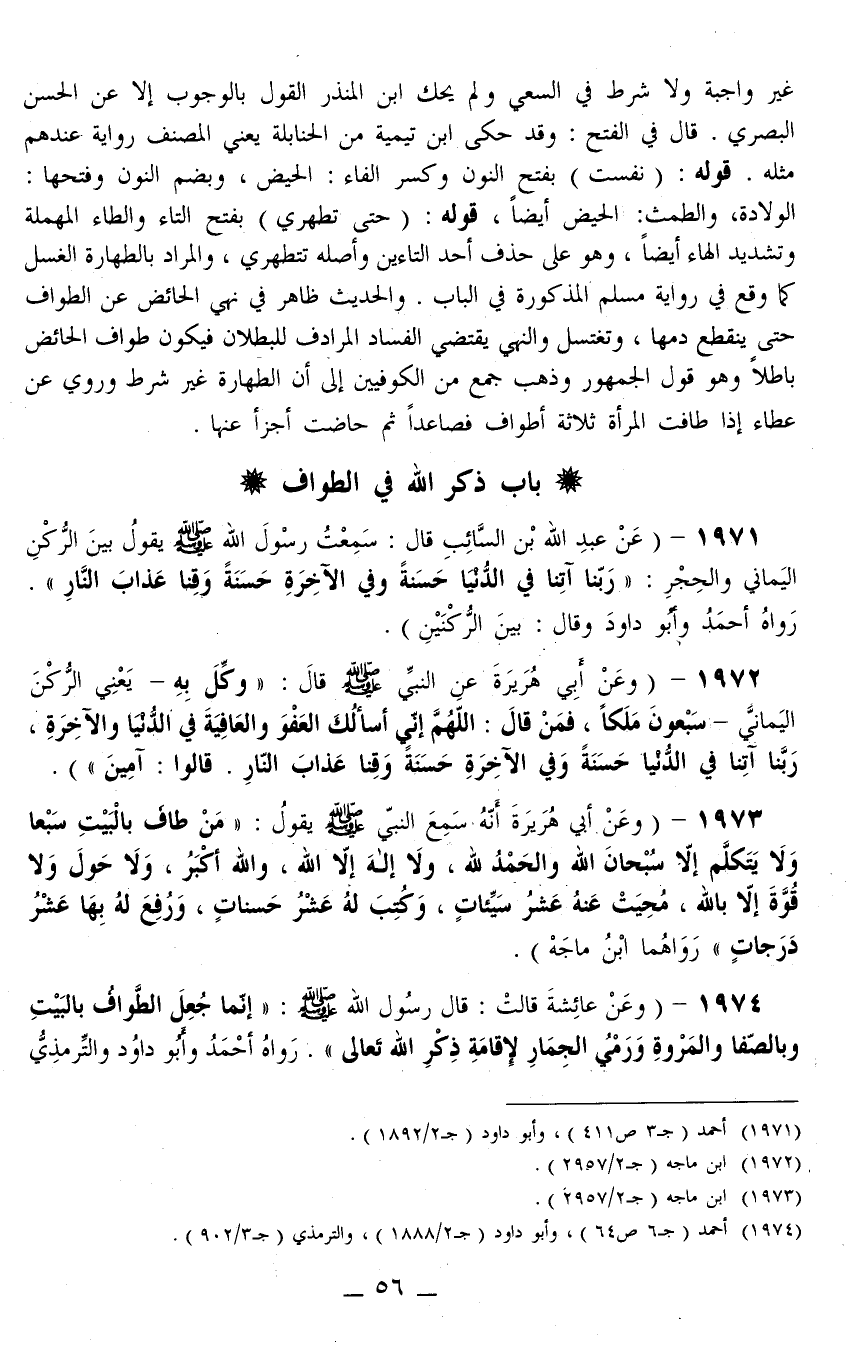 غير واجبة ولا شرط في السعي ولم يحك ابن المنذر القول بالوجوب إلا عن الحسن
البصري . قال في الفتح : وقد حكى ابن تيمية من الحنابلة يعني المصنف رواية عندهم
مثله . قوله : ( نفست ) بفتح النون وكسر الفاء : الحيض ، وبضم النون وفتحها :
الولادة، والطمث: الحيض أيضاً ، قوله : ( حتى تطهري ) بفتح التاء والطاء المهملة
وتشديد الهاء أيضاً ، وهو على حذف أحد التاءين وأصله تتطهري ، والمراد بالطهارة الغسل
كما وقع في رواية مسلم المذكورة في الباب . والحديث ظاهر في نهي الحائض عن الطواف
حتى ينقطع دمها ، وتغتسل والنهي يقتضي الفساد المرادف للبطلان فيكون طواف الحائض
باطلاً وهو قول الجمهور وذهب جمع من الكوفيين إلى أن الطهارة غير شرط وروي عن
عطاء إذا طافت المرأة ثلاثة أطواف فصاعداً ثم حاضت أجزأ عنها .
باب ذكر الله في الطواف
١٩٧١ – ( عَنْ عبدِ الله بْنِ السَّائِبِ قال : سَمِعْتُ رسْولَ الله ﷺ يقولُ بينَ الرُّكْنِ
اليَماني والحِجْرِ : « رَبّنا آتِنا في الدُّنْيَا حَسَنةً وفي الآخِرَةِ حَسَنَةً وَقِنا عَذابَ النَّارِ » .
رَواهُ أحمَدُ وأبُو داودَ وقال : بينَ الرُّكْنَيْنِ ) .
١٩٧٢ – ( وعَنْ أَبِي هُرَيرَةَ عنِ النبيِّ ﷺ قالَ : « وكِّلَ بِهِ – يَعْنِي الرُّكْنَ
اليَمانيَّ – سَبْعونَ مَلَكاً ، فمَنْ قالَ : اللّهُمَّ إنّي أسألُكَ العَفْوَ والعَافِيَةَ في الدُّنْيَا والآخِرَةِ ،
رَبَّنا آتِنا في الدُّنْيا حَسَنَةً وَفي الآخِرَةِ حَسَنَةً وَقِنا عَذابَ النّارِ . قالوا : آمِينَ » ) .
١٩٧٣ – ( وعَنْ أبي هُرَيرَةَ أَنَّهُ سَمِعَ النبيّ ﷺ يقولُ : « مَنْ طافَ بالْبَيْتِ سَبْعا
وَلَا يَتَكلَّم إلّا سُبْحانَ الله والحَمْدُ لله ، ولَا إلـٰهَ إلّا الله ، والله أكْبَرُ ، وَلَا حَولَ وَلا
قُوَّةَ إلّا بالله ، مُحِيَتْ عَنهُ عَشرُ سَيِّئاتٍ ، وَكُتِبَ لهُ عَشْرُ حَسناتٍ ، وَرُفِعَ لهُ بِهَا عَشْرُ
دَرَجاتٍ » رَوَاهُما ابْنُ ماجَهْ ) .
١٩٧٤ – ( وعَنْ عائِشةَ قالتْ : قال رسُول الله ﷺ : « إنّما جُعِلَ الطَّوافُ بالبَيْتِ
وبالصّفا والمَرْوةِ وَرَمْيُ الجِمَارِ لِإقامَةِ ذِكْرِ الله تَعالى » . رَواهُ أحْمَدُ وأَبُو داوُد والتِّرمذِيُّ
(١٩٧١) أحمد ( جـ٣ ص٤١١ ) ، وأبو داود ( جـ١٨٩٢/٢ ) .
(١٩٧٢) ابن ماجه ( جـ٢٩٥٧/٢ ) .
(١٩٧٣) ابن ماجه ( جـ٢٩٥٧/٢ ) .
(١٩٧٤) أحمد ( جـ٦ ص٦٤ ) ، وأبو داود ( جـ١٨٨٨/٢ ) ، والترمذي ( جـ٩٠٢/٣ ) .
— ٥٦ —